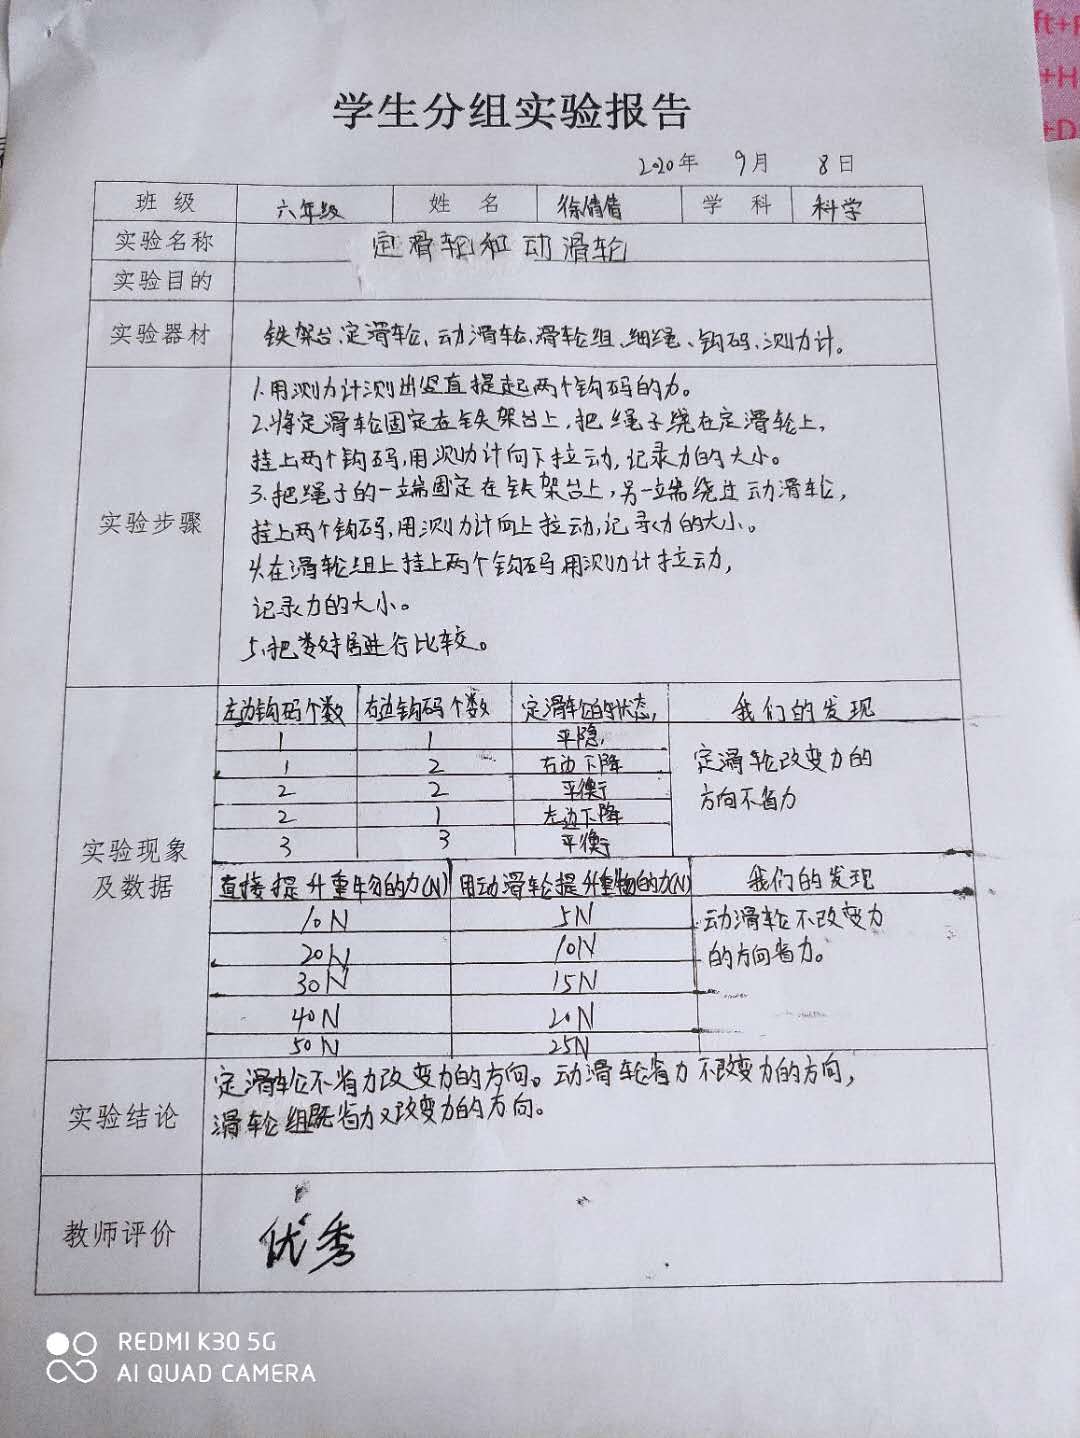 ft+F
+H
+D
学生分组实验报告
2020年 9月 8日
班 级 六年级 姓 名 徐倩倩 学 科 科学
实验名称 定滑轮和动滑轮
实验目的
实验器材 铁架台、定滑轮、动滑轮、滑轮组、细绳、钩码、测力计。
1.用测力计测出竖直提起两个钩码的力。
2.将定滑轮固定在铁架台上,把绳子绕在定滑轮上,
挂上两个钩码,用测力计向下拉动,记录力的大小。
3.把绳子的一端固定在铁架台上,另一端绕过动滑轮,
实验步骤
挂上两个钩码,用测力计向上拉动,记录力的大小。
4.在滑轮组上挂上两个钩码用测力计拉动,
记录力的大小。
5.把数据进行比较。
左边钩码个数 右边钩码个数 定滑轮的状态, 我们的发现
1 1 平隐,
1 2 右边下降
2 2 平衡
2 1 左边下降
3 3 平衡
定滑轮改变力的
方向不省力
实验现象
及数据
直接提升重物的力(N) 用动滑轮提升重物的力(N) 我们的发现
10N 5N
20N 10N
30N 15N
40N 20N
50N 25N
动滑轮不改变力
的方向省力。
实验结论
定滑轮不省力改变力的方向。动滑轮省力不改变力的方向,
滑轮组既省力又改变力的方向。
教师评价 优秀
REDMI K30 5G
AI QUAD CAMERA